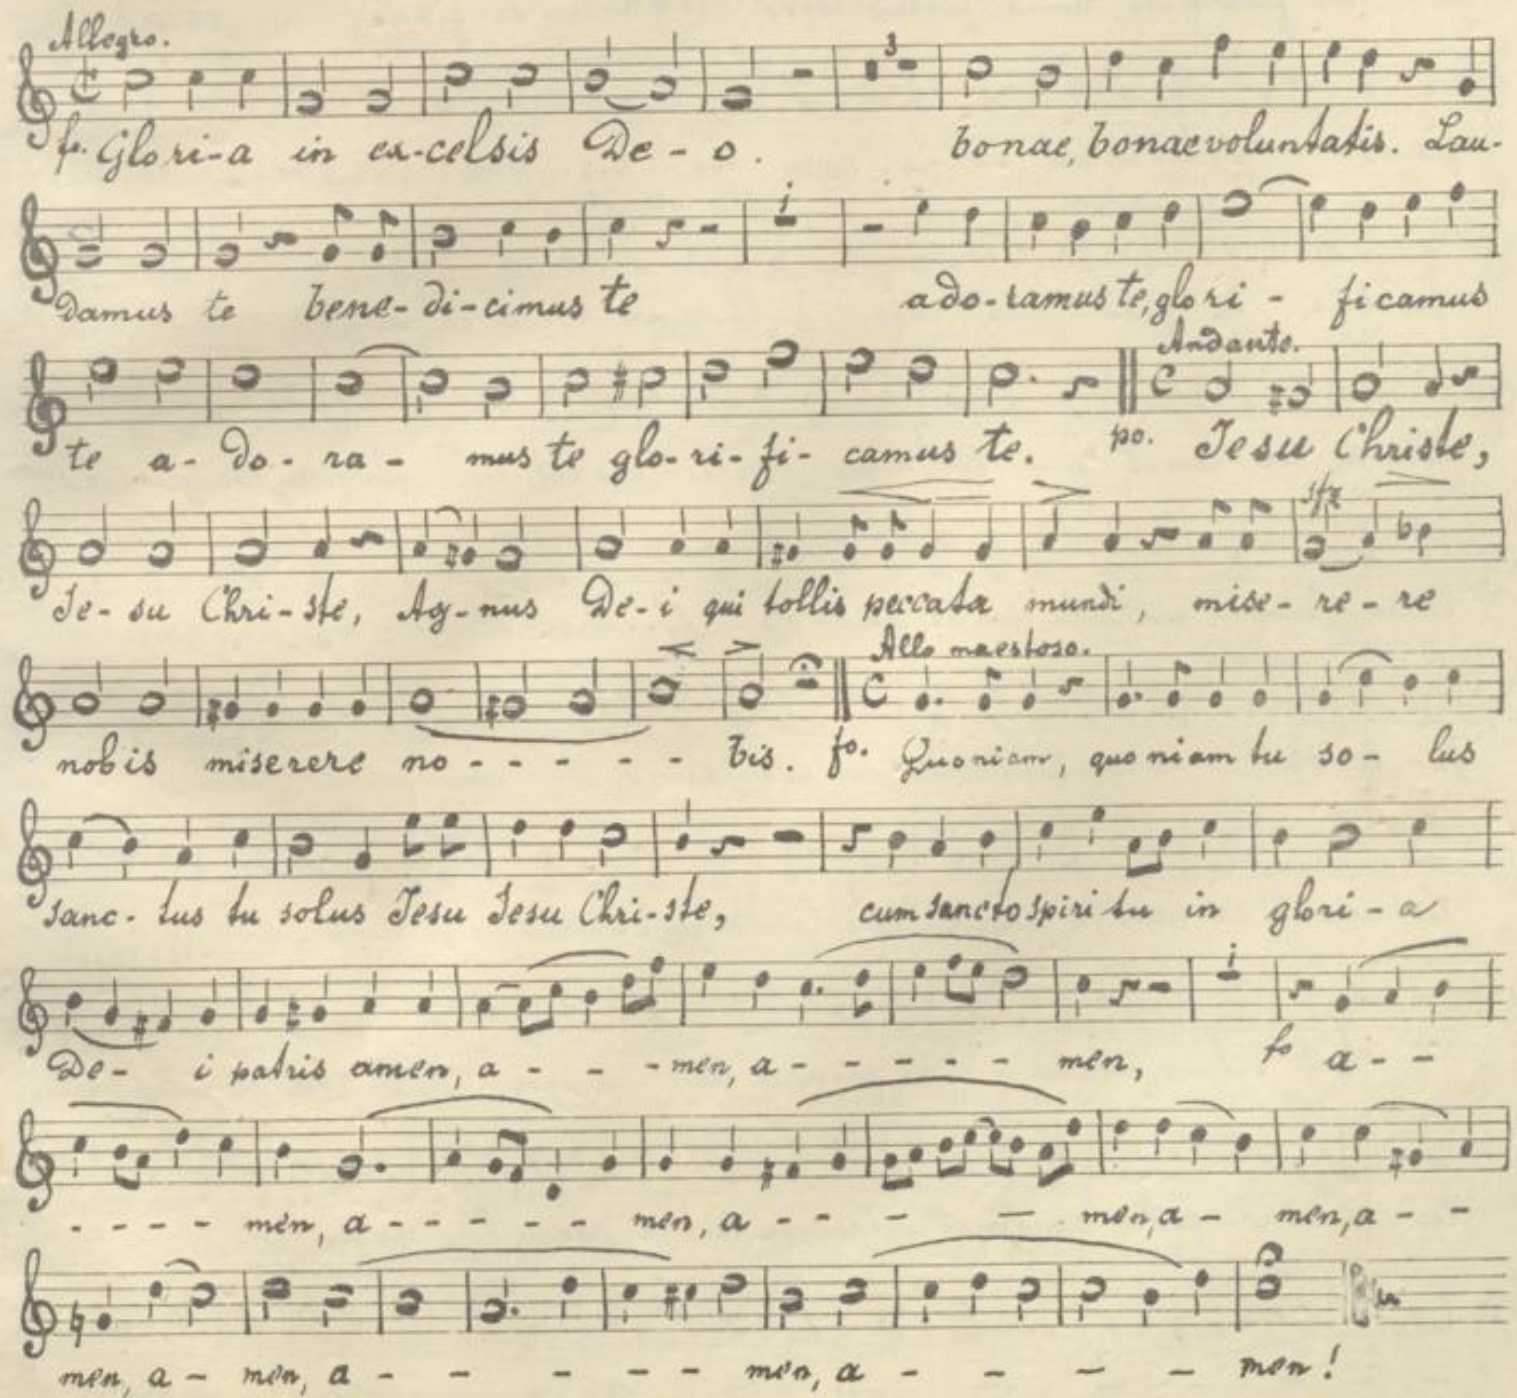 Allegro.
3
fo. Glori-a in ex-celsis De-o. bonae, bonae voluntatis. Lau-
i
damus te bene-di-cimus te ado-ramus te, glori - ficamus
Andante.
te a-do-ra- mus te glo-ri-fi-camus te. po. Jesu Christe,
sfz
Je-su Chri-ste, Ag-nus De-i qui tollis peccata mundi, mise-re-re
Allo maestoso.
nobis miserere no - - - - - bis. fo. Quoniam, quoniam tu so- lus
sanc-tus tu solus Jesu Jesu Chri-ste, cum sancto spiritu in glori-a
i
De- i patris amen, a - - - men, a - - - - - - men, fo a - -
- - - - men, a - - - - - - men, a - - - - men, a - men, a - -
men, a - men, a - - - - - - men, a - - - - men!